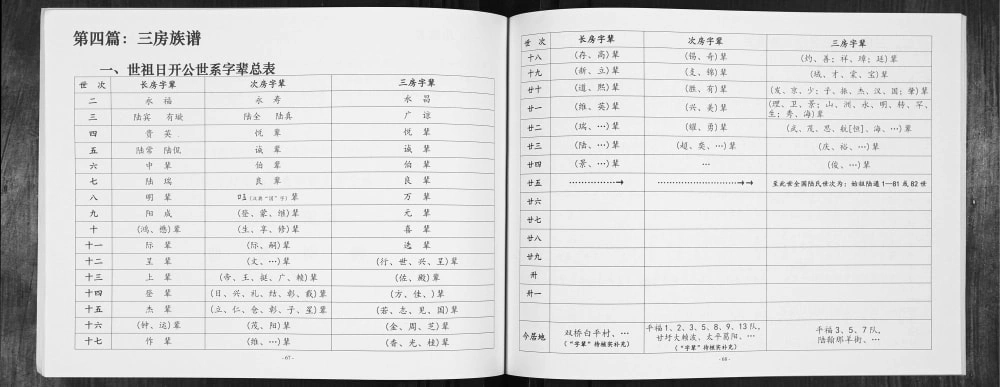 第四篇：三房族谱
一、世祖日开公世系字辈总表
世 次 长房字辈 次房字辈 三房字辈
二 永 福 永 寿 永 昌
三 陆宾 有璇 陆全 陆真 广 谅
四 贵 英 悦 辈 悦 辈
五 陆常 陆侃 诚 辈 诚 辈
六 中 辈 伯 辈 伯 辈
七 陆 瑞 良 辈 良 辈
八 明 辈 辈 万 辈
九 阳 成 (登、蒙、维)辈 元 辈
十 (鸿、懋)辈 (生、享、修)辈 喜 辈
十一 际 辈 (际、嗣)辈 选 辈
十二 呈 辈 (文、…)辈 (行、世、兴、呈)辈
十三 上 辈 (帝、王、挺、广、赖)辈 (佐、殿)辈
十四 登 辈 (日、兴、礼、结、彰、载)辈 (方、佳、)辈
十五 杰 辈 (立、仁、仓、彰、子、星)辈 (若、志、见、国)辈
十六 (钟、运)辈 (茂、阳)辈 (金、周、芝)辈
十七 作 辈 (维、…)辈 (香、光、桂)辈
·67·
世 次 长房字辈 次房字辈 三房字辈
十八 (存、高)辈 (锡、奇)辈 (约、善；祥、璋；廷)辈
十九 (新、立)辈 (支、锦)辈 (域、才、蒙、宝)辈
廿十 (道、熙)辈 (胜、有)辈 (发、京、少；子、振、杰、汉、国；肇)辈
廿一 (维、英)辈 (兴、美)辈 (理、卫、景；山、洲、永、明、转、罕、
生；秀、海)辈
廿二 (瑞、…)辈 (耀、勇)辈 (武、茂、思、航[恒]、海、…)辈
廿三 (陆、…)辈 (超、奕、…)辈 (庆、裕、…)辈
廿四 (景、…)辈 … (俊、…)辈
廿五 ……………→ ………………………→→ 至此世全国陆氏世次为：始祖陆通1—81或82世
廿六
廿七
廿八
廿九
卅
卅一
今居地 双桥白平村、… 平福1、2、3、5、8、9、13队， 平福3、5、7队，
甘圩大赖波、太平葛阳、… 陆翰那羊街、…
(“字辈”待核实补充) (“字辈”待核实补充)
·68·